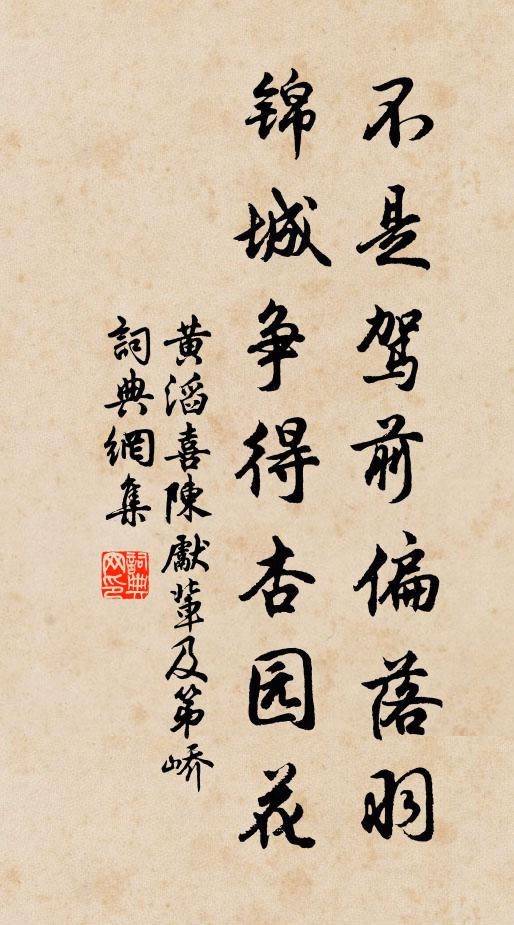 不是驾前偏落羽
锦城争得杏园花
黄滔喜陳獻輩及第嶠
詞典網集
詞典网印